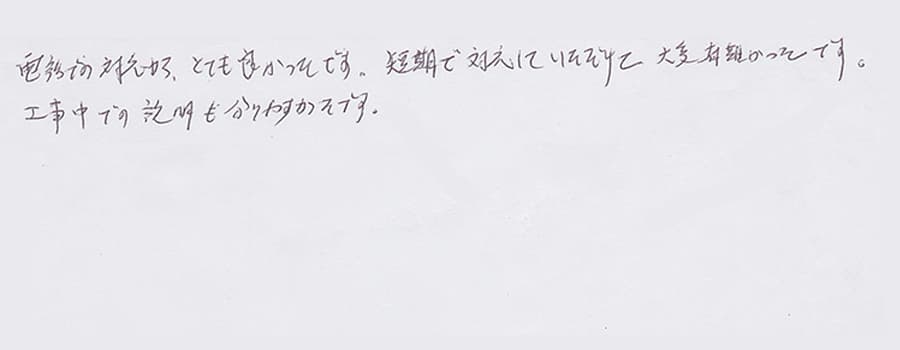 電話での対応が、とても良かったです。短期で対応していただけて大変有難かったです。
工事中での説明も分りやすかったです。